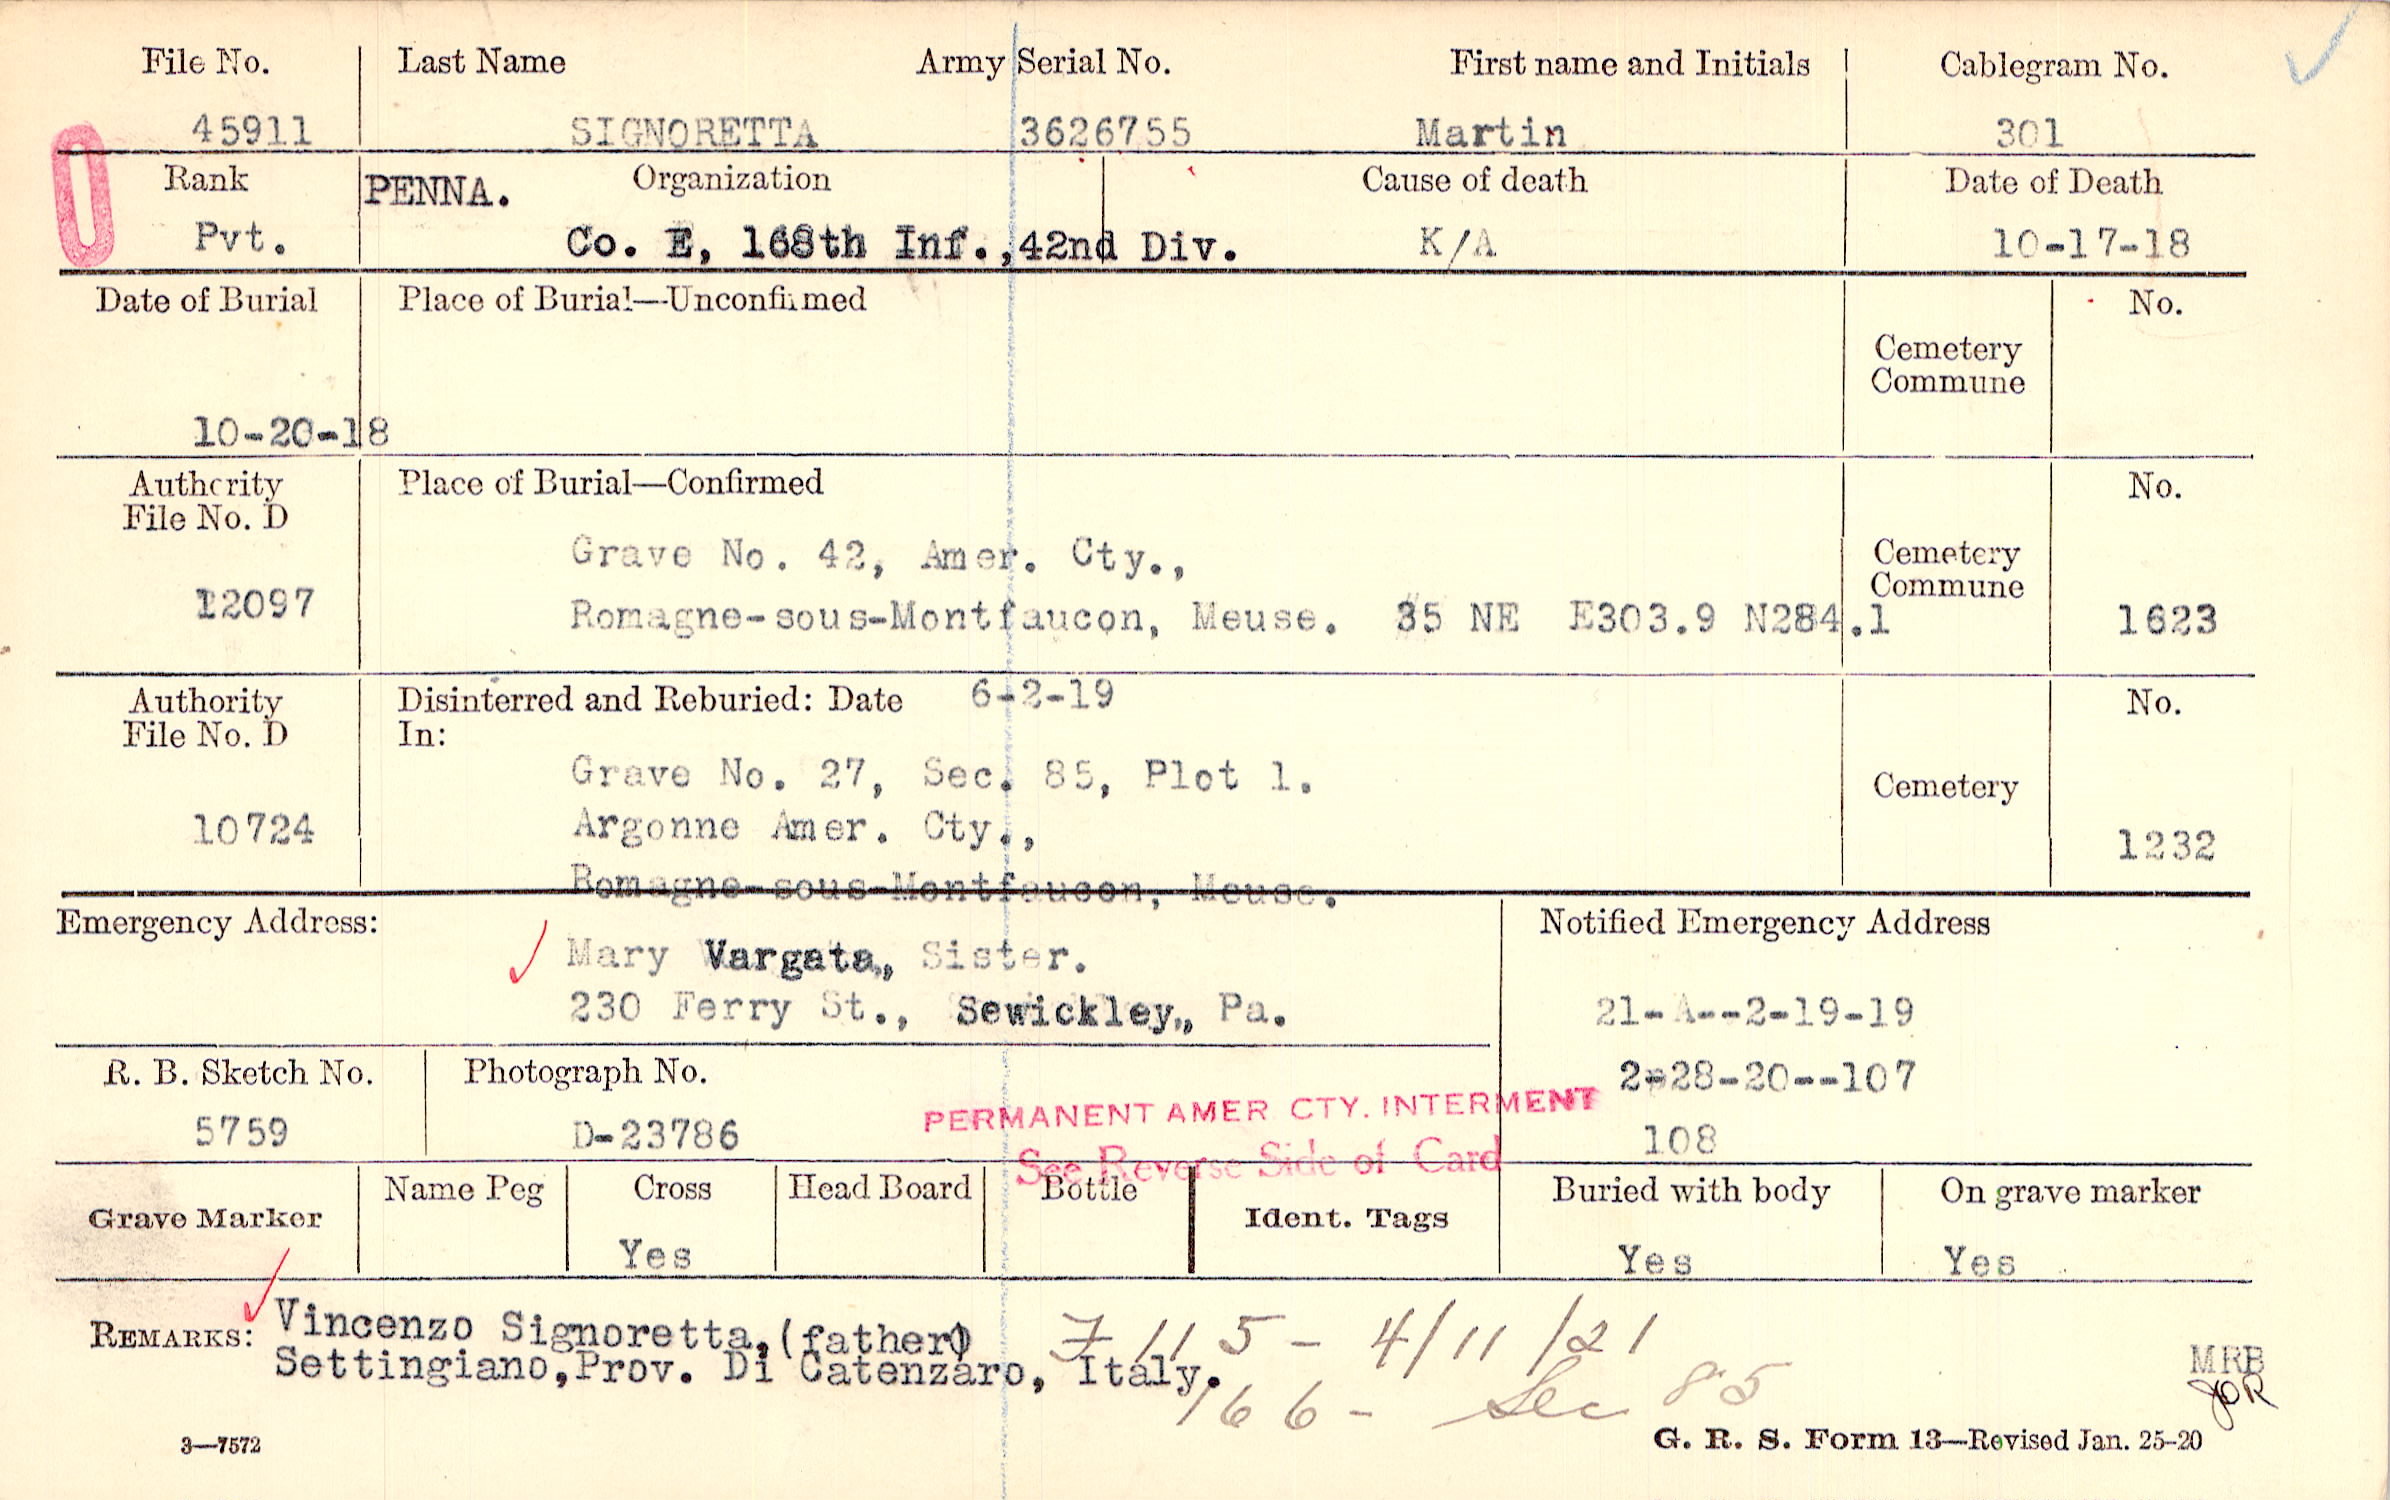 File No. Last Name Army Serial No. First name and Initials Cablegram No.
45911 SIGNORETTA 3626755 Martin 301
Rank PENNA. Organization Cause of death Date of Death
Pvt. Co. E, 168th Inf.,42nd Div. K/A 10-17-18
Date of Burial Place of Burial—Unconfirmed No.
Cemetery
Commune
10-20-18
Authority Place of Burial—Confirmed No.
File No. D
Grave No. 42, Amer. Cty., Cemetery
Commune
12097 Romagne-sous-Montfaucon, Meuse. 35 NE E303.9 N284.1 1623
Authority Disinterred and Reburied: Date 6-2-19 No.
File No. D In:
Grave No. 27, Sec. 85, Plot 1. Cemetery
10724 Argonne Amer. Cty., 1232
Romagne-sous-Montfaucon, Meuse.
Emergency Address: Notified Emergency Address
Mary Vargata, Sister.
230 Ferry St., Sewickley, Pa. 21-A--2-19-19
R. B. Sketch No. Photograph No. 2-28-20--107
PERMANENT AMER CTY. INTERMENT
5759 D-23786 108
See Reverse Side of Card
Grave Marker Name Peg Cross Head Board Bottle Ident. Tags Buried with body On grave marker
Yes Yes Yes
REMARKS: Vincenzo Signoretta,(father) 7 11 5 - 4/11/21
Settingiano,Prov. Di Catenzaro, Italy. MRB
166 - Sec 85 JOR
3—7572 G. R. S. Form 13—Revised Jan. 25-20